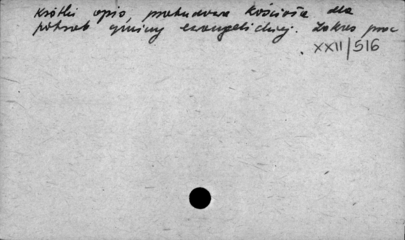 Krótki opis, przebudowa kościoła dla
potrzeb gminy ewangelickiej. Zakres prac
XXII/516